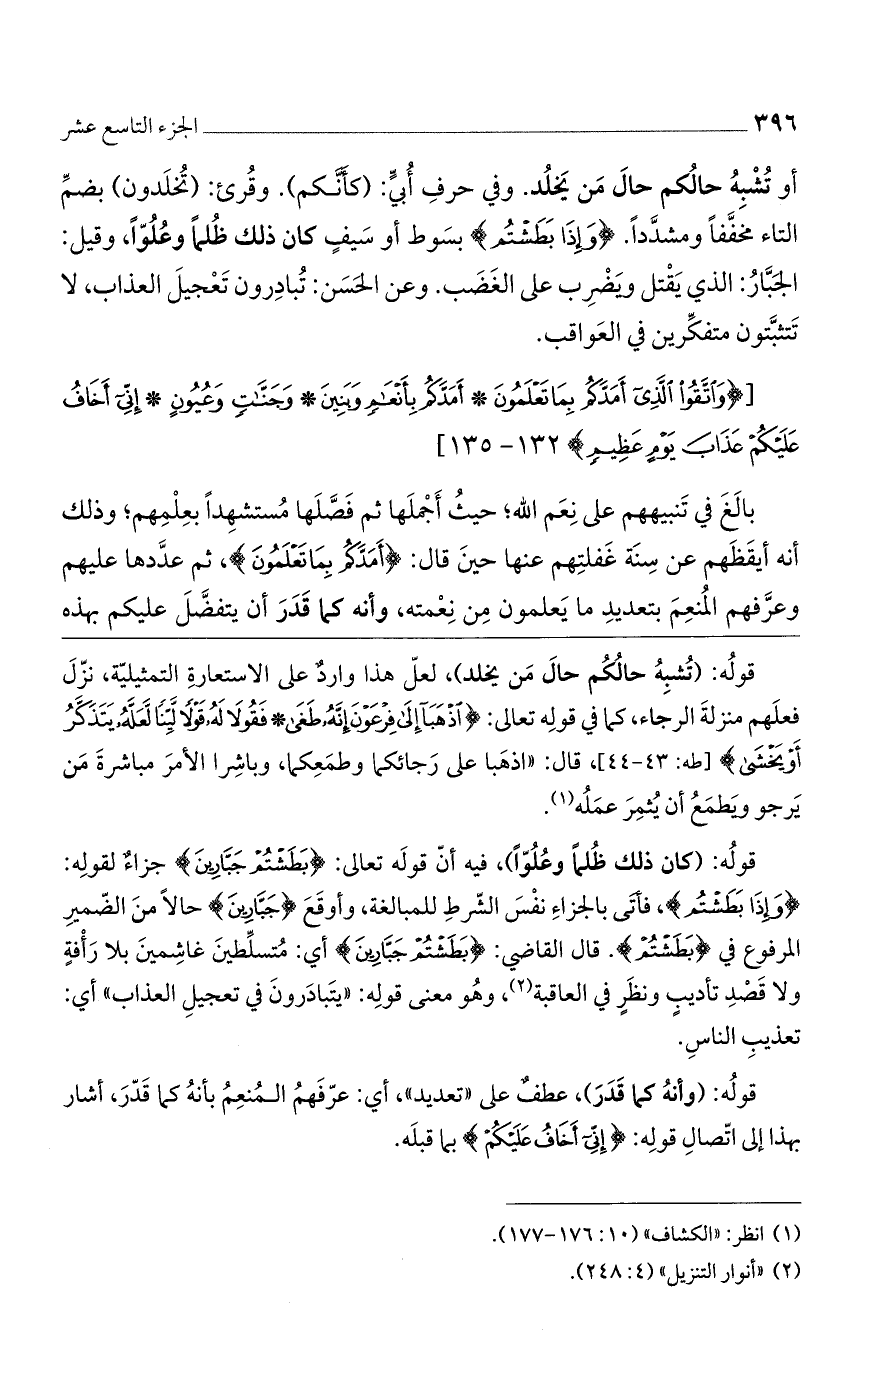 ٣٩٦ الجزء التاسع عشر
أو تُشْبِهُ حالُكم حالَ مَن يَخلُد. وفي حرفِ أُبيٍّ: (كأنَّكم). وقُرئ: (تُخلَدون) بضمِّ
التاء مخفَّفاً ومشدَّداً. ﴿وَإِذَا بَطَشْتُم﴾ بسَوط أو سَيفٍ كان ذلك ظُلماً وعُلُوّاً، وقيل:
الجَبَّارُ: الذي يَقْتل ويَضْرِب على الغَضَب. وعن الحَسَن: تُبادِرون تَعْجيلَ العذاب، لا
تَتثبَّتون متفكِّرين في العَواقب.
[﴿وَاتَّقُوا الَّذِي أَمَدَّكُم بِمَا تَعْلَمُونَ * أَمَدَّكُم بِأَنْعَامٍ وَبَنِينَ * وَجَنَّاتٍ وَعُيُونٍ * إِنِّي أَخَافُ
عَلَيْكُمْ عَذَابَ يَوْمٍ عَظِيمٍ﴾ ١٣٢- ١٣٥]
بالَغَ في تَنبيههم على نِعَم الله؛ حيثُ أَجْملَها ثم فَصَّلَها مُستشهِداً بعِلْمِهم؛ وذلك
أنه أيقَظَهم عن سِنَة غَفلتِهم عنها حينَ قال: ﴿أَمَدَّكُم بِمَا تَعْلَمُونَ﴾، ثم عدَّدها عليهم
وعرَّفهم المُنعِمَ بتعديدِ ما يَعلمون مِن نِعْمته، وأنه كما قَدَرَ أن يتفضَّلَ عليكم بهذه
قولُه: (تُشبِهُ حالُكُم حالَ مَن يخلد)، لعلّ هذا واردٌ على الاستعارةِ التمثيليّة، نزّلَ
فعلَهم منزلةَ الرجاء، كما في قولِه تعالى: ﴿اذْهَبَا إِلَى فِرْعَوْنَ إِنَّهُ طَغَى * فَقُولَا لَهُ قَوْلًا لَّيِّنًا لَّعَلَّهُ يَتَذَكَّرُ
أَوْ يَخْشَى﴾ [طه: ٤٣-٤٤]، قال: «اذهَبا على رَجائكما وطمَعِكما، وباشِرا الأمرَ مباشرةَ مَن
يَرجو ويَطمَعُ أن يُثمِرَ عمَلُه(١).
قولُه: (كان ذلك ظُلماً وعُلُوّاً)، فيه أنّ قولَه تعالى: ﴿بَطَشْتُمْ جَبَّارِينَ﴾ جزاءٌ لقولِه:
﴿وَإِذَا بَطَشْتُم﴾، فأتَى بالجزاءِ نفْسَ الشّرطِ للمبالغة، وأوقَعَ ﴿جَبَّارِينَ﴾ حالاً منَ الضّميرِ
المرفوع في ﴿بَطَشْتُمْ﴾. قال القاضي: ﴿بَطَشْتُمْ جَبَّارِينَ﴾ أي: مُتسلِّطينَ غاشِمينَ بلا رَأْفةٍ
ولا قَصْدِ تأديبٍ ونظَرٍ في العاقبة(٢)، وهُو معنى قولِه: «يتَبادَرونَ في تعجيلِ العذاب» أي:
تعذيبِ الناسِ.
قولُه: (وأنهُ كما قَدَرَ)، عطفٌ على «تعديد»، أي: عرّفَهمُ المُنعِمُ بأنهُ كما قَدّرَ، أشار
بهذا إلى اتّصالِ قولِه: ﴿إِنِّي أَخَافُ عَلَيْكُمْ﴾ بما قبلَه.
(١) انظر: «الكشاف» (١٠: ١٧٦-١٧٧).
(٢) «أنوار التنزيل» (٤: ٢٤٨).